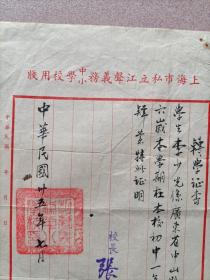 上海市私立江聲義務中小學校用牋
轉學證書
學生李少光係廣東省中山
六歲本學期在本校初中一
肄業特此證明
校長張
中華民國廿五年七月
中華民國 年 月 日